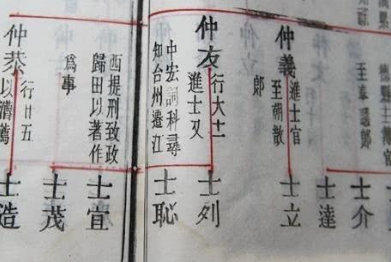 仲義
進士官
至朝散
郎
仲友
行大十二
進士又
中宏詞科尋
知台州遷江
西提刑致政
歸田以著作
爲事
仲恭
行廿五
士介
士達
士立
士列
士恥
士宣
士茂
士造